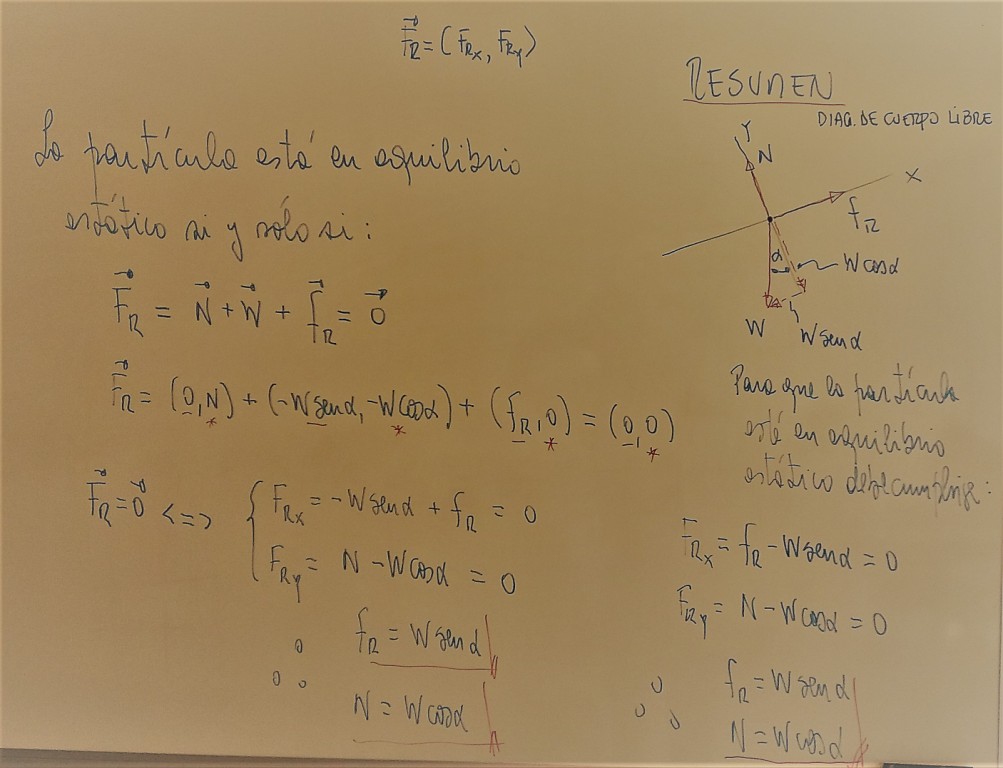 F⃗_R = (F_Rx, F_Ry)
La partícula está en equilibrio
estático si y sólo si:
F⃗_R = N⃗ + W⃗ + f⃗_R = 0⃗
F⃗_R = (0, N) + (-W sen α, -W cos α) + (f_R, 0) = (0, 0)
F⃗_R = 0⃗ <=> { F_Rx = -W sen α + f_R = 0
F_Ry = N - W cos α = 0
∴ f_R = W sen α
N = W cos α
RESUMEN
DIAG. DE CUERPO LIBRE
Y
N
X
f_R
α
W cos α
W
W sen α
Para que la partícula
esté en equilibrio
estático debe cumplirse:
F_Rx = f_R - W sen α = 0
F_Ry = N - W cos α = 0
∴ f_R = W sen α
N = W cos α